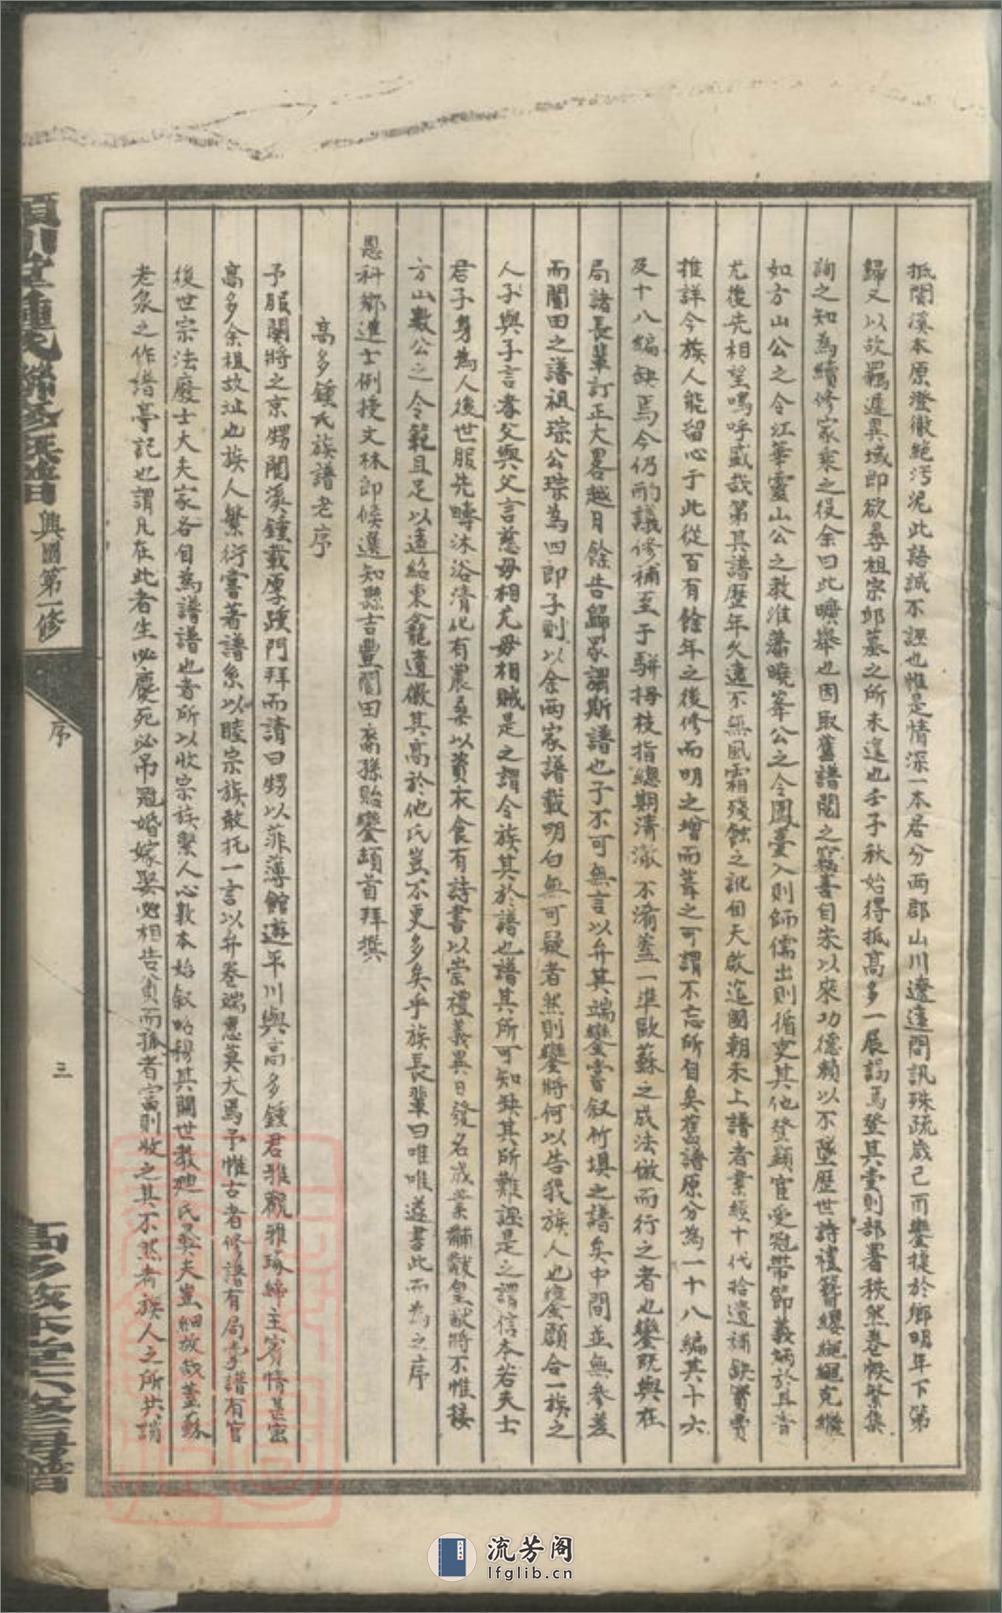 抵閬溪本原澄徹絶污泥此語誠不誣也惟是情深一本居分兩郡山川遼遠問訊殊疏歲己而鑾捷於鄉明年下第
歸又以故羈遲異域即欲尋祖宗邱墓之所未遑也壬子秋始得抵高多一展謁焉登其堂則部署秩然卷帙繁集
詢之知為續修家乘之役余曰此曠舉也因取舊譜閱之竊喜自宋以來功德賴以不墜歷世詩禮簪纓繩繩克繼
如方山公之令江華靈山公之教淮藩曉峯公之令鳳臺入則師儒出則循吏其他登顯宦受冠帶節義炳於且音
尤後先相望嗚呼盛哉第其譜歷年久遠不無風霜殘蝕之訛自天啟迄國朝未上譜者業經十代拾遺補缺實費
推詳今族人能留心于此從百有餘年之後修而明之增而葺之可謂不忘所自矣舊譜原分為一十八編其十六
及十八編缺焉今仍酌議修補至于駢拇枝指總期清澈不淆蓋一準歐蘇之成法倣而行之者也鑾既與在
局諸長輩訂正大畧越月餘告歸家謂斯譜也子不可無言以弁其端鑾嘗叙竹埧之譜矣中間並無參差
而閬田之譜祖琮公琮為四郎子則以余兩家譜載明白無可疑者然則鑾將何以告我族人也處願合一族之
人子與子言孝父與父言慈毋相尤毋相賊是之謂令族其於譜也譜其所可知缺其所難誣是之謂信本若夫士
君子身為人後世服先疇沐浴清化有農桑以資衣食有詩書以崇禮義異日發名成業黼黻皇猷將不惟接
方山數公之令範且足以遠紹東龕遺徽其高於他氏豈不更多矣乎族長輩曰唯唯遂書此而為之序
恩科鄉進士例授文林郎候選知縣吉豐閬田裔孫貽鑾頓首拜撰
高多鍾氏族譜老序
予服闋將之京甥閬溪鍾載厚踵門拜而請曰甥以菲薄館遊平川與高多鍾君雅觀雅琢締主賓情甚密
高多余祖故址也族人繁衍嘗著譜系以睦宗族敢托一言以弁卷端惠莫大焉予惟古者修譜有局掌譜有官
後世宗法廢士大夫家各自為譜譜也者所以收宗族繫人心敦本始叙昭穆其關世教
老泉之作譜亭記也謂凡在此者生必慶死必吊冠婚嫁娶必相告貧而孤者富則收之其不然者族人之所共誚
鍾氏 修族譜 興國第一修
序
三
高多敦本堂六修合譜
流芳阁
lfglib.cn